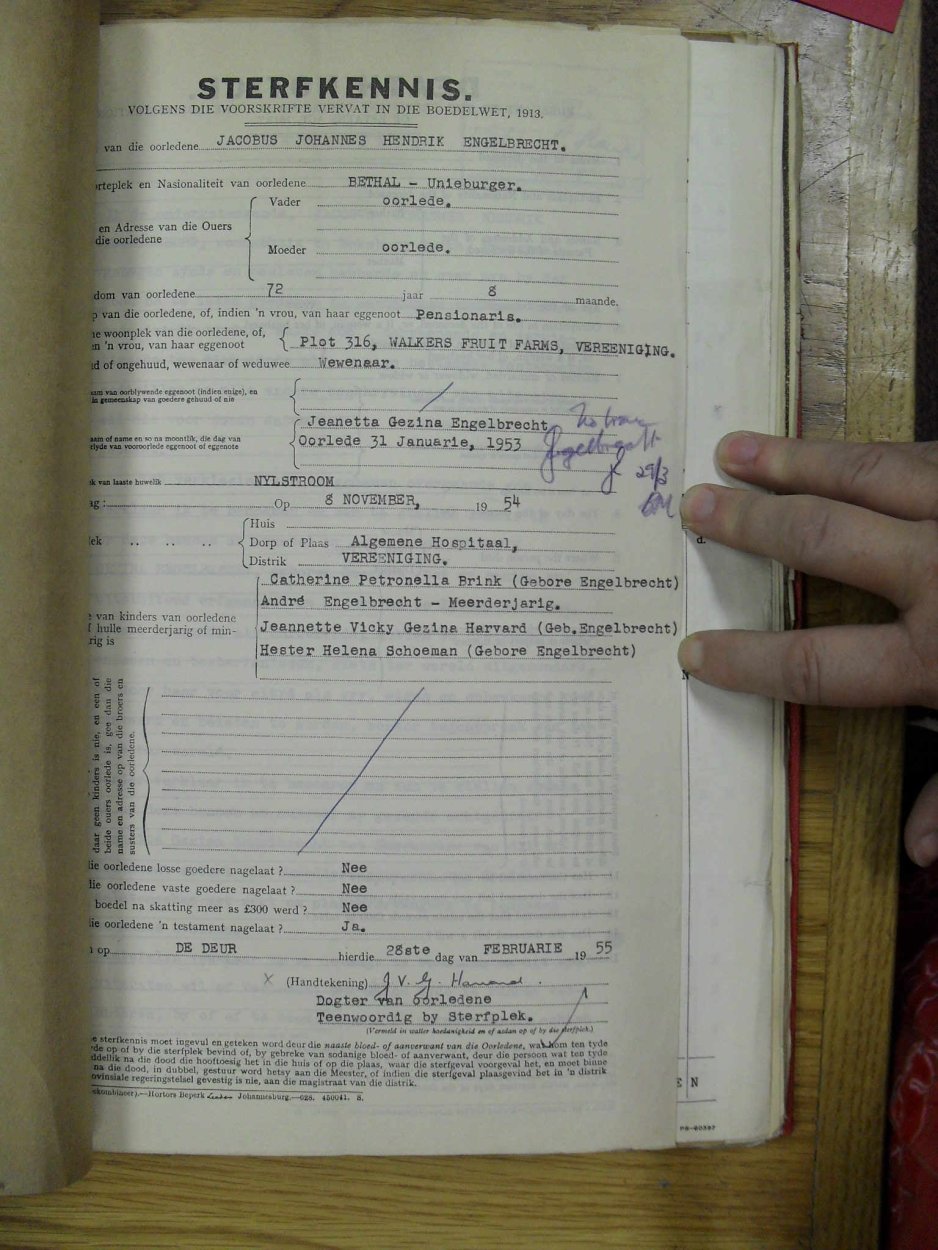 STERFKENNIS.
VOLGENS DIE VOORSKRIFTE VERVAT IN DIE BOEDELWET, 1913.
van die oorledene JACOBUS JOHANNES HENDRIK ENGELBRECHT.
orteplek en Nasionaliteit van oorledene BETHAL - Unieburger.
Vader oorlede.
en Adresse van die Ouers
die oorledene
Moeder oorlede.
dom van oorledene 72 jaar 8 maande.
p van die oorledene, of, indien 'n vrou, van haar eggenoot Pensionaris.
ne woonplek van die oorledene, of,
en 'n vrou, van haar eggenoot Plot 316, WALKERS FRUIT FARMS, VEREENIGING.
d of ongehuud, wewenaar of weduwee Wewenaar.
aam van oorblywende eggenoot (indien enige), en
in gemeenskap van goedere gehuud of nie
Jeanetta Gezina Engelbrecht
aam of name en so na moontlik, die dag van
erlyde van vooroorlede eggenoot of eggenote
Oorlede 31 Januarie, 1953
Engelbrecht
29/3
k van laaste huwelik NYLSTROOM
ag: Op 8 NOVEMBER, 19 54
Huis
lek .. .. .. Dorp of Plaas Algemene Hospitaal,
Distrik VEREENIGING.
Catherine Petronella Brink (Gebore Engelbrecht)
André Engelbrecht - Meerderjarig.
e van kinders van oorledene
f hulle meerderjarig of min-
rig is
Jeannette Vicky Gezina Harvard (Geb.Engelbrecht)
Hester Helena Schoeman (Gebore Engelbrecht)
daar geen kinders is nie, en een of
beide ouers oorlede is, gee dan die
name en adresse op van die broers en
susters van die oorledene.
die oorledene losse goedere nagelaat? Nee
die oorledene vaste goedere nagelaat? Nee
boedel na skatting meer as £300 werd? Nee
die oorledene 'n testament nagelaat? Ja.
n op DE DEUR hierdie 28ste dag van FEBRUARIE 19 55
X (Handtekening) J. V. G. Harvard.
Dogter van oorledene
Teenwoordig by Sterfplek.
(Vermeld in watter hoedanigheid en of aldan op of by die sterfplek.)
e sterfkennis moet ingevul en geteken word deur die naaste bloed- of aanverwant van die Oorledene, wat kom ten tyde
rde op of by die sterfplek bevind of, by gebreke van sodanige bloed- of aanverwant, deur die persoon wat ten tyde
ddellik na die dood die hooftoesig het in die huis of op die plaas, waar die sterfgeval voorgeval het, en moet binne
na die dood, in dubbel, gestuur word hetsy aan die Meester, of indien die sterfgeval plaasgevind het in 'n distrik
ovinsiale regeringstelsel gevestig is nie, aan die magistraat van die distrik.
ekombineer).—Hortors Beperk Johannesburg.—028. 450041. S.
d.
N
E N
PS-60397